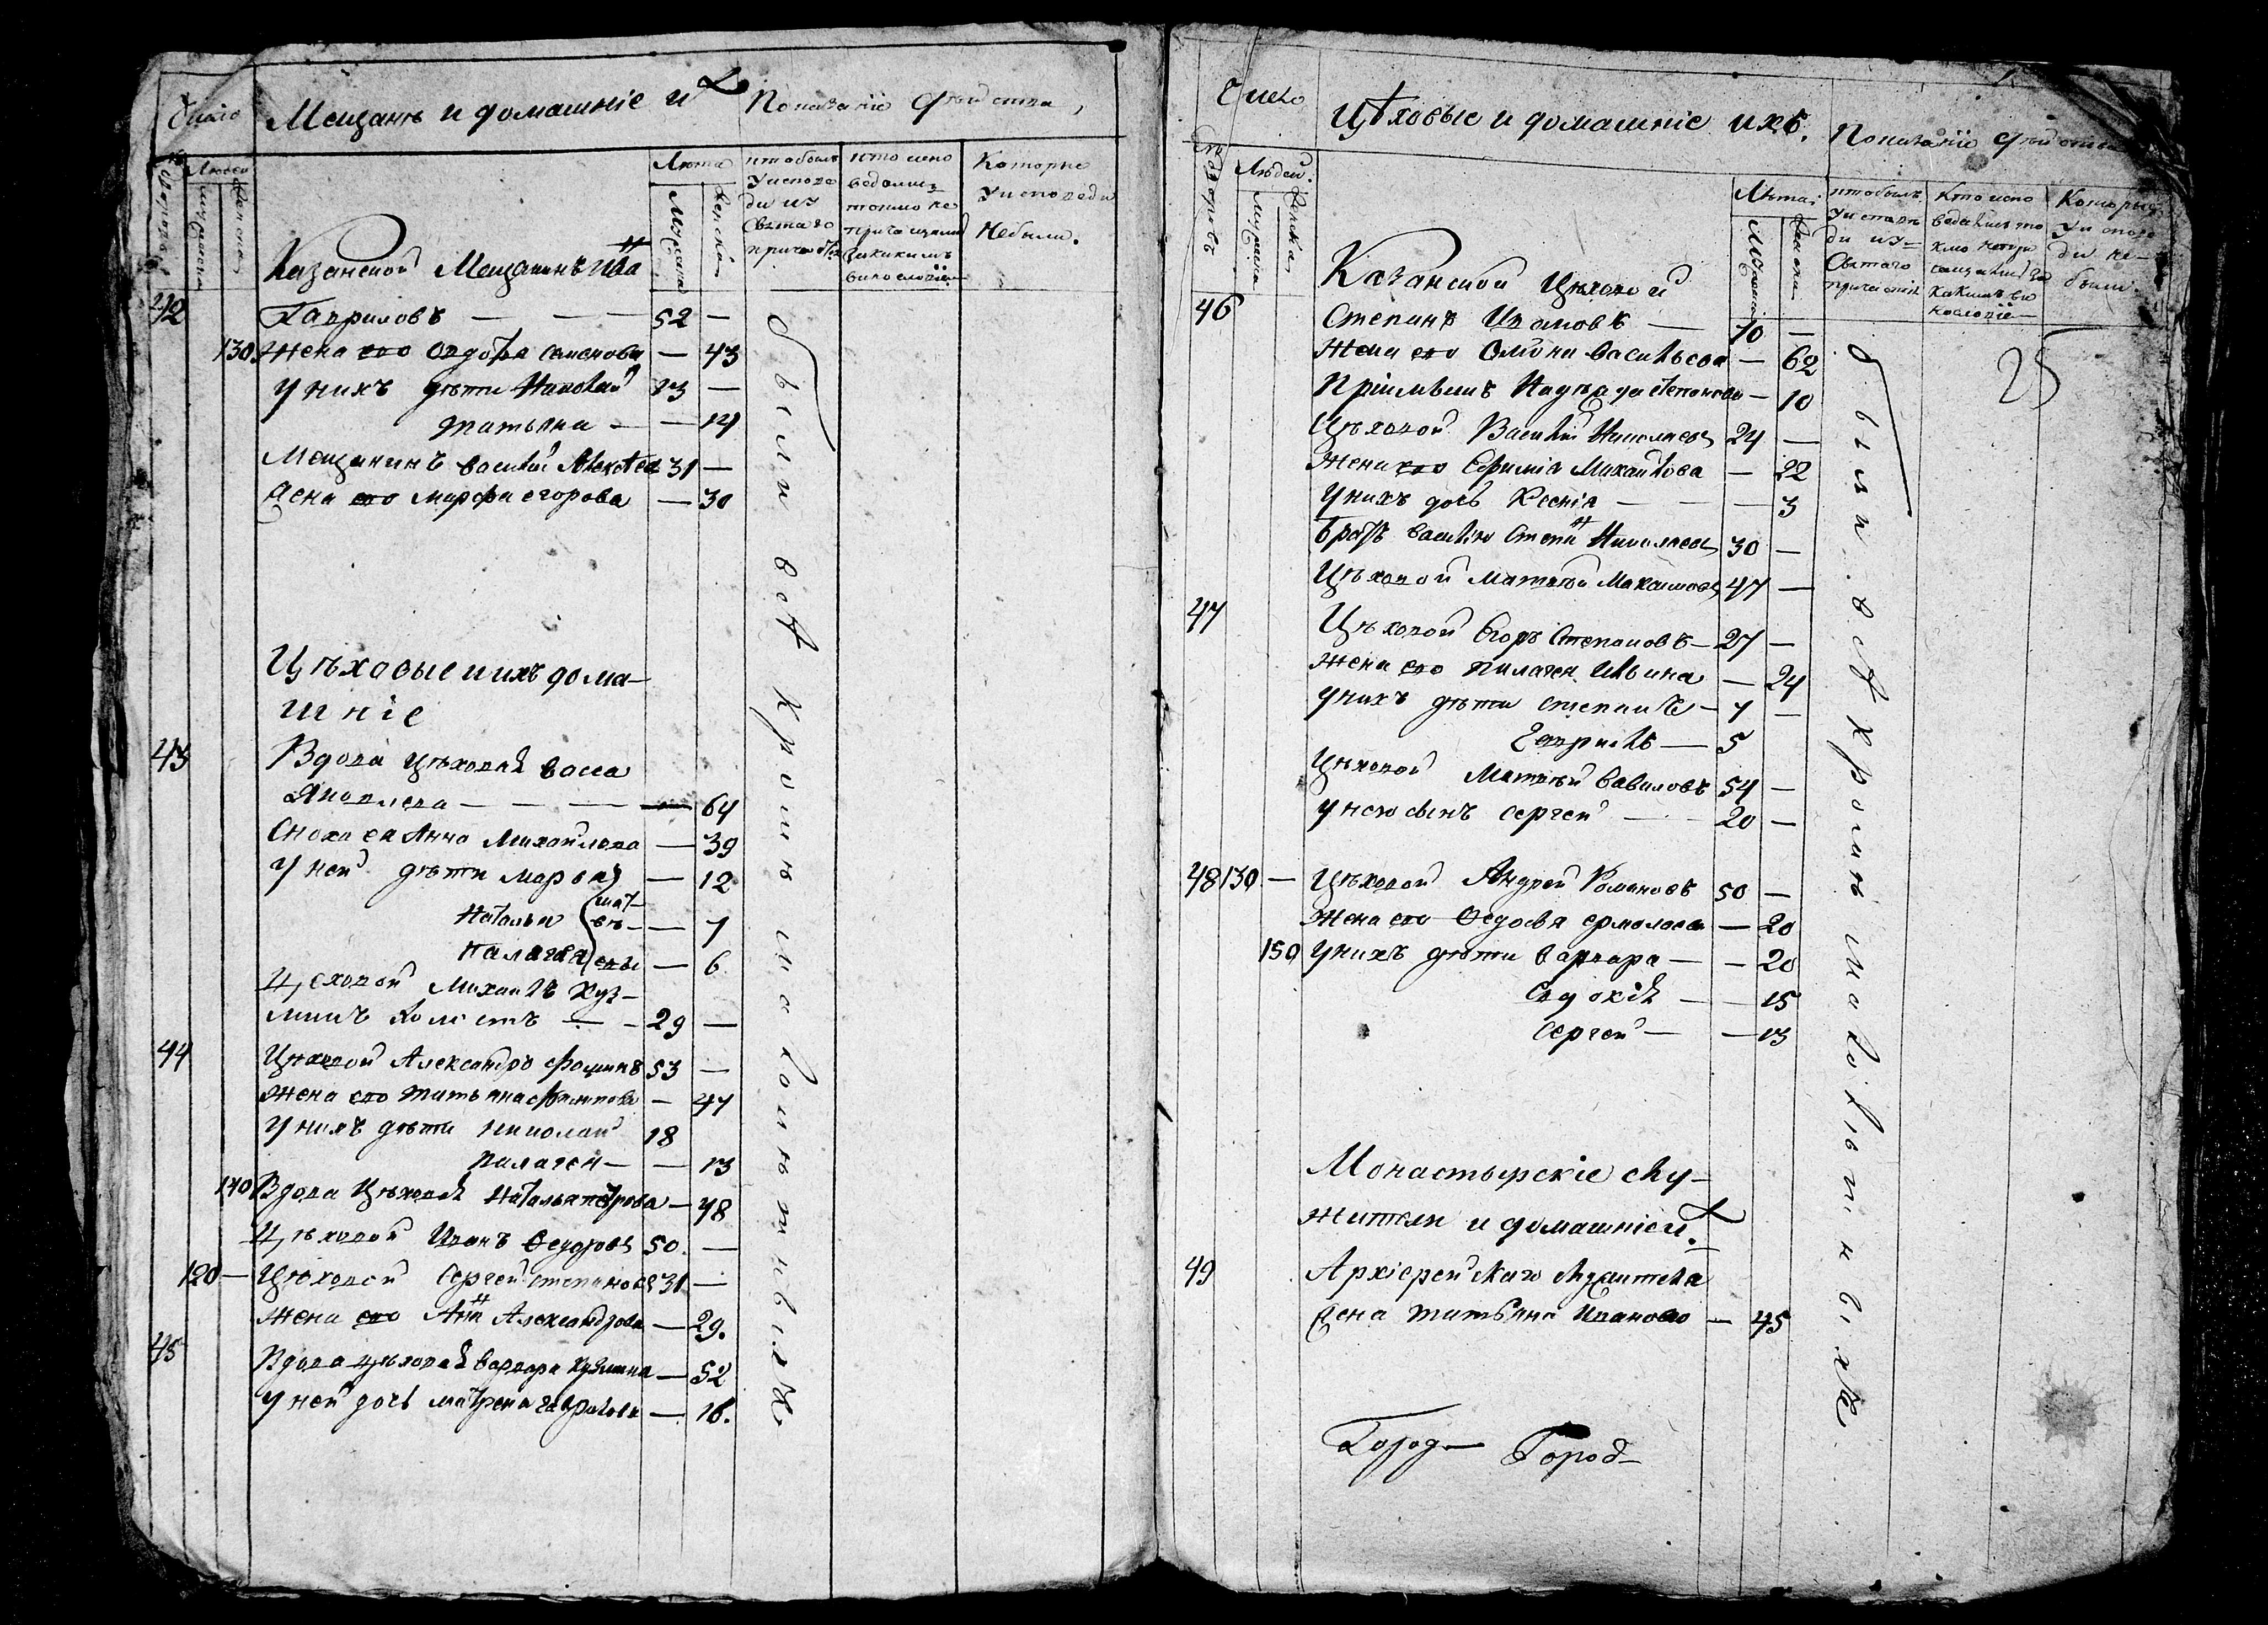 Число
Мещанъ и домашніе их
Показаніе дѣйства,
дворовъ
Людей
мужеска
женска
Лѣта
Мужеска
женска
кто былъ
у испове
ди и у
святаго
причастія
кто испо
ведались
токмо не
причащались
за какимъ
винословіем
Которые
у исповеди
небыли.
Казанской Мещанинъ Иван
42 Гавриловъ — 52 —
130 Жена его Овдотья Семенова — 43
у нихъ дѣти Николай 13 —
Татьяна — 14
Мещанинъ Василей Алексеев 31 —
Жена его Марфа Егорова — 30
Цѣховые и ихъ дома-
шніе
43 Вдова цѣховая Васса
Яковлева — 64
Сноха ея Анна Михайлова — 39
у ней дѣти Марья — 12
Наталья — 7
мат-
вѣ-
Палагея — 6
евы
Цеховой Михаилъ Куз-
минъ холостъ — 29 —
44 Цѣховой Александръ Фоминъ 53 —
Жена его Татьяна Филипова — 47
у нихъ дѣти Николай 18
Палагея — 13
140 Вдова Цѣховая Наталья Петрова — 48
Цѣховой Иванъ Федоровъ 50 —
120 — Цѣховой Сергей Степановъ 31 —
Жена его Анна Александрова — 29.
45 Вдова цѣховая Варвара Кузмина — 52
у ней дочь Матрена Гаврилова — 16.
были всѣ кромѣ малолѣтнѣихъ
Число
Цѣховые и домашніе ихъ.
Показаніе дѣйства
дворовъ
Людей.
мужеска
женска
Лѣта
Мужеска
женска
кто былъ
у испове
ди и у
святаго
причастія
Кто испо
ведались то
кмо непри
чащались за
какимъ ви
нословіе
Которые
у испове
ди не-
были
25
Казанской Цѣховой
46 Степанъ Ивановъ — 70 —
Жена его Васильева — 62
Пріимышъ Надежда Степанова — 10
Цѣховой Василій Николаевъ 24 —
Жена его Ефимія Михайлова — 22
у нихъ дочь Ксенія — 3
Братъ Василію Степанъ Николаевъ 30 —
Цѣховой Матвѣй Максимовъ 47 —
47 Цѣховой Егоръ Степановъ — 27 —
Жена его Пилагея Ильина — 24
у нихъ дѣти Степанъ — 7 —
Гаврилъ — 5
Цѣховой Матвѣй Вавиловъ 54 —
у него сынъ Сергей — 20 —
48 130 — Цѣховой Андрей Романовъ 50 —
Жена его Федосья Ермолаева — 20
150 у нихъ дѣти Варвара — 20
Евдокія — 15
Сергей — 13
Монастырскіе слу-
жители и домашніе их.
49 Архіерейскаго служителя
Жена Татьяна Иванова — 45
Город— Город—
были всѣ кромѣ малолѣтнѣихъ